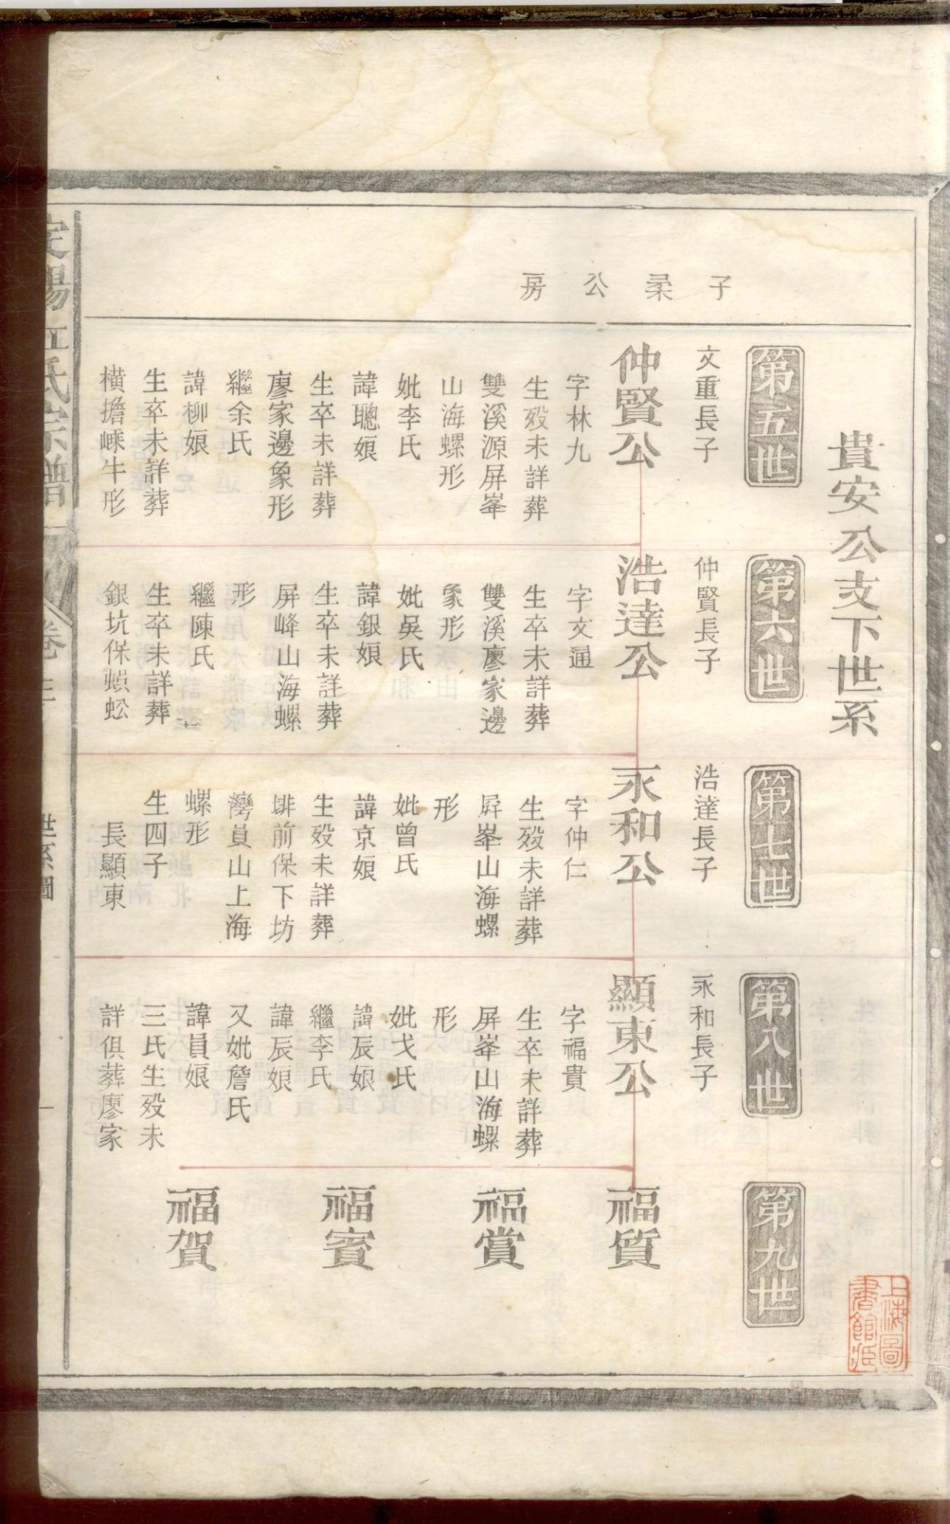 貴安公支下世系
子柔公房
第五世
文重長子
仲賢公
字林九
生歿未詳葬
雙溪源屏峯
山海螺形
妣李氏
諱聰娘
生卒未詳葬
廖家邊象形
繼余氏
諱柳娘
生卒未詳葬
橫擔嵊牛形
第六世
仲賢長子
浩達公
字文通
生卒未詳葬
雙溪廖家邊
象形
妣吳氏
諱銀娘
生卒未詳葬
屏峰山海螺
形
繼陳氏
生卒未詳葬
銀坑保蜈蚣
第七世
浩達長子
永和公
字仲仁
生歿未詳葬
屏峯山海螺
形
妣曾氏
諱京娘
生歿未詳葬
前保下坊
灣員山上海
螺形
生四子
長顯東
第八世
永和長子
顯東公
字福貴
生卒未詳葬
屏峯山海螺
形
妣戈氏
諱辰娘
繼李氏
諱辰娘
又妣詹氏
諱員娘
三氏生歿未
詳俱葬廖家
第九世
福質
福賞
福賓
福賀
氏宗譜
卷三
世系圖
一
上海圖書館藏